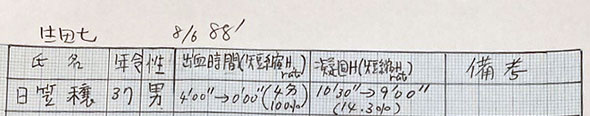 生田七 8/6 88'
氏名 年令 性 出血時間(短縮H rat) 凝固H(短縮H rat) 備考
日笠穣 37 男 4'00"→0'00"(4分 100%) 10'30"→9'00" (14.3%)